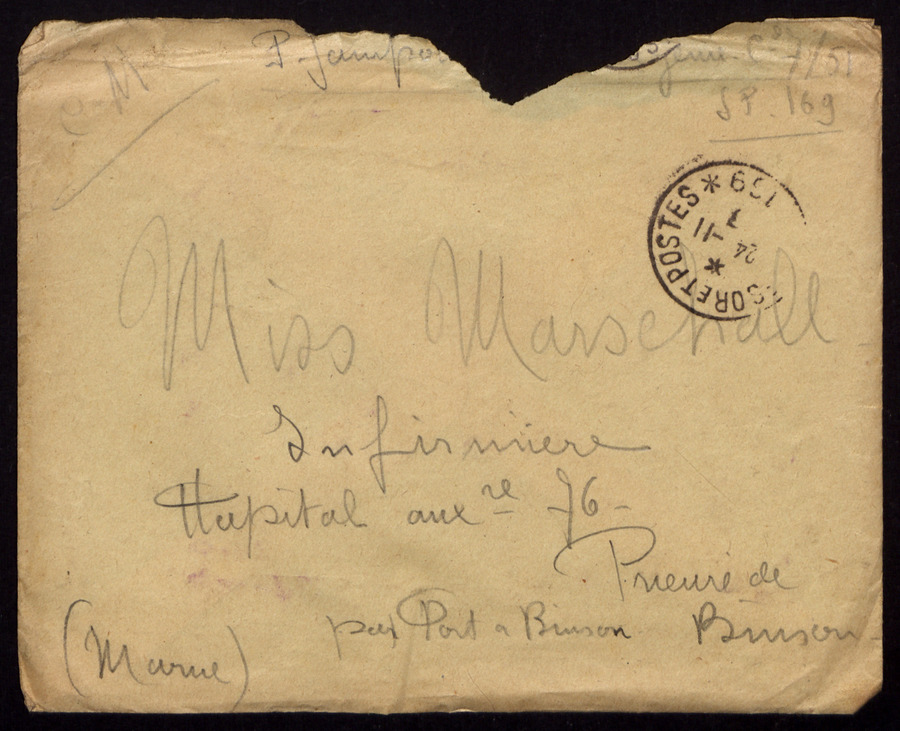 F. M P. Jampo génie Cie 7/51
SP. 169
TRESOR ET POSTES * 169 *
7 -11
24
Miss Marschall
Infirmiere
Hopital auxre 76
Prieuré de
par Port a Binson Binson
(Marne)